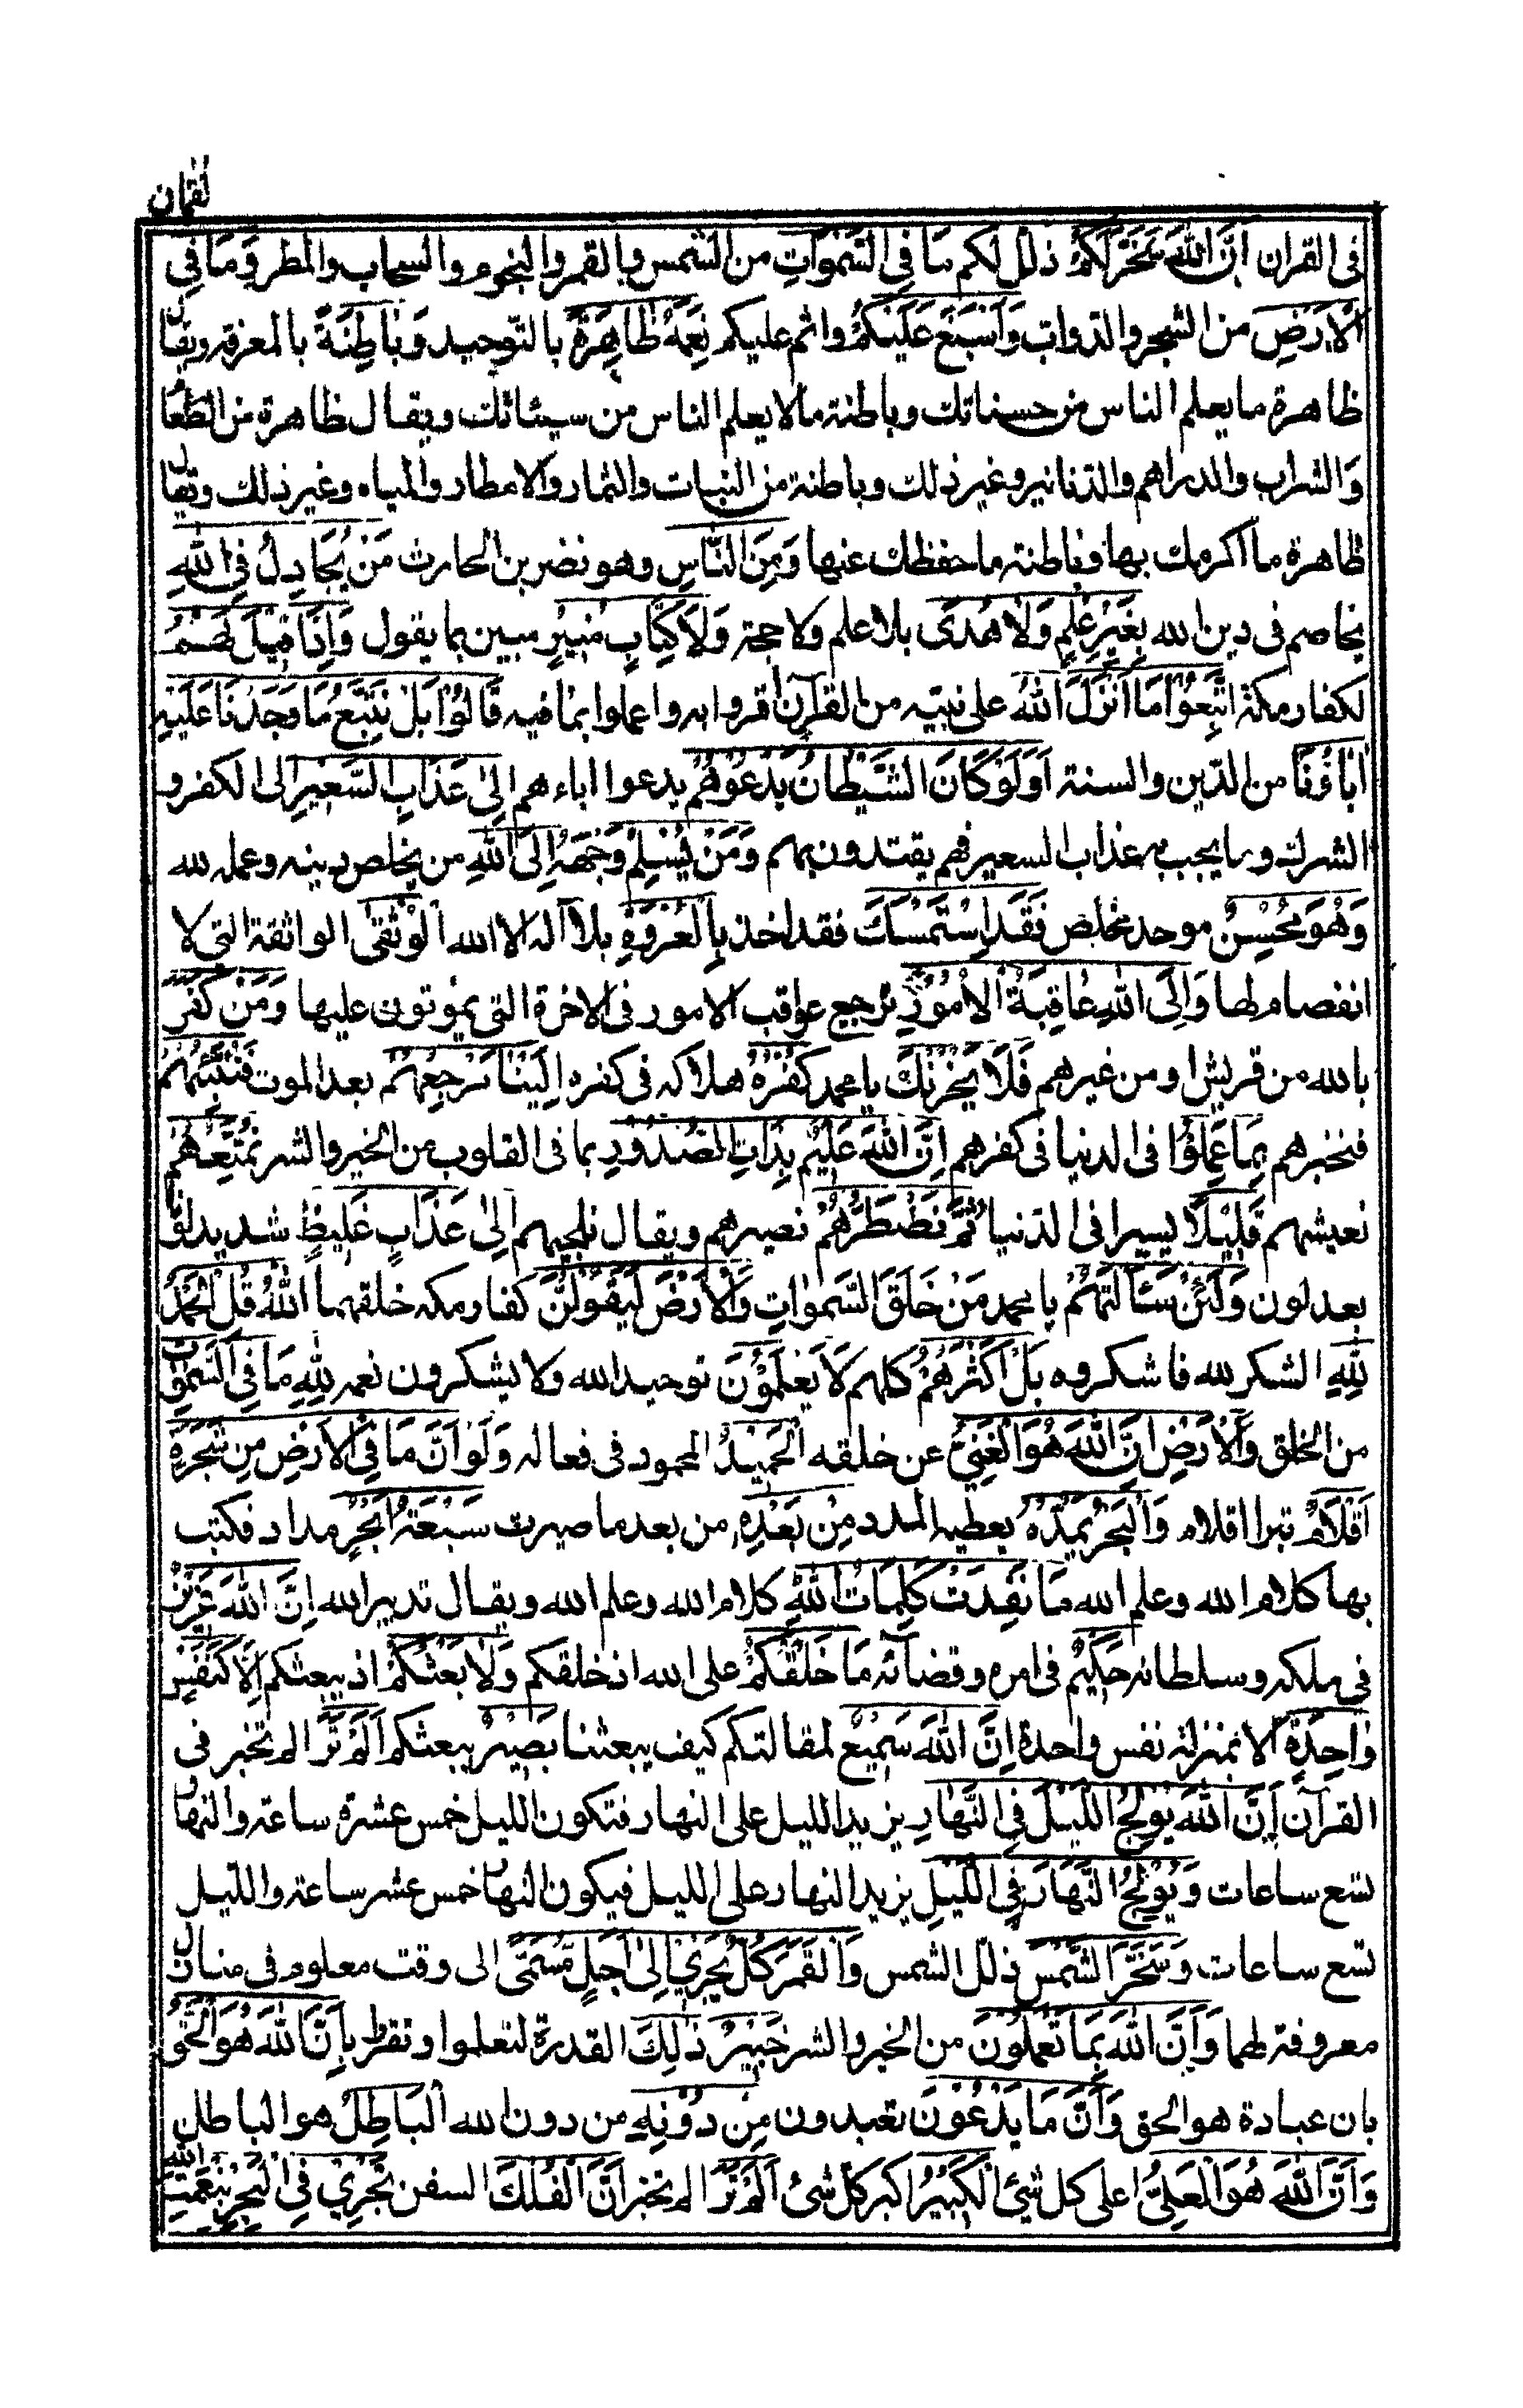 لقمان
فى القران اَنَّ اللّٰهَ سَخَّرَ لَكُمْ ذلل لكم مَا فِى السَّمٰوَاتِ من الشمس والقمر والنجوم والسحاب والمطر وَمَا فِى
الْاَرْضِ من الشجر والدواب وَاَسْبَغَ عَلَيْكُمْ واتم عليكم نِعَمَهٗ ظَاهِرَةً بالتوحيد وَبَاطِنَةً بالمعرفة ويقال
ظاهرة ما يعلم الناس من حسناتك وباطنة ما لا يعلم الناس من سيئاتك ويقال ظاهرة من الطعا
وَالشراب والدراهم والدنانير وغير ذلك وباطنة من النبات والثمار والامطار والمياه وغير ذلك ويقال
ظاهرة ما اكرمك بها وباطنة ما حفظك عنها وَمِنَ النَّاسِ وهو نضر بن الحارث مَنْ يُّجَادِلُ فِى اللّٰهِ
يخاصم فى دين الله بِغَيْرِ عِلْمٍ وَلَا هُدًى بلا علم ولا حجة وَلَا كِتَابٍ مُّنِيْرٍ مبين بما يقول وَاِذَا قِيْلَ لَهُمُ
لكفار مكة اتَّبِعُوْا مَا اَنْزَلَ اللّٰهُ على نبيه من القرآن اقروا به واعملوا بما فيه قَالُوْا بَلْ نَتَّبِعُ مَا وَجَدْنَا عَلَيْهِ
اٰبَاءَنَا من الدين والسنة اَوَلَوْ كَانَ الشَّيْطَانُ يَدْعُوْهُمْ يدعوا اباءهم اِلٰى عَذَابِ السَّعِيْرِ الى الكفر و
الشرك وما يجب به عذاب السعير فهم يقتدون بهم وَمَنْ يُّسْلِمْ وَجْهَهٗ اِلَى اللّٰهِ من يخلص دينه وعمله لله
وَهُوَ مُحْسِنٌ موحد مخلص فَقَدِ اسْتَمْسَكَ فقد اخذ بِالْعُرْوَةِ بلا اله الا الله الْوُثْقٰى الواثقة التى لا
انفصام لها وَاِلَى اللّٰهِ عَاقِبَةُ الْاُمُوْرِ ترجع عواقب الامور فى الاخرة التى يموتون عليها وَمَنْ كَفَرَ
بالله من قريش او من غيرهم فَلَا يَحْزُنْكَ يا محمد كُفْرُهٗ هلاكه فى كفره اِلَيْنَا مَرْجِعُهُمْ بعد الموت فَنُنَبِّئُهُمْ
فنخبرهم بِمَا عَمِلُوْا فى الدنيا فى كفرهم اِنَّ اللّٰهَ عَلِيْمٌ بِذَاتِ الصُّدُوْرِ بما فى القلوب من الخير والشر نُمَتِّعُهُمْ
نعيشهم قَلِيْلًا يسيرا فى الدنيا ثُمَّ نَضْطَرُّهُمْ نصيرهم ويقال نلجيهم اِلٰى عَذَابٍ غَلِيْظٍ شديد لون
بعد لون وَلَئِنْ سَاَلْتَهُمْ يا محمد مَنْ خَلَقَ السَّمٰوَاتِ وَالْاَرْضَ لَيَقُوْلُنَّ كفار مكه خلقهما اللّٰهُ قُلِ الْحَمْدُ
لِلّٰهِ الشكر لله فاشكروه بَلْ اَكْثَرُهُمْ كلهم لَا يَعْلَمُوْنَ توحيد الله ولا يشكرون نعمه لِلّٰهِ مَا فِى السَّمٰوٰتِ
من الخلق وَالْاَرْضِ اِنَّ اللّٰهَ هُوَ الْغَنِىُّ عن خلقه الْحَمِيْدُ المحمود فى فعاله وَلَوْ اَنَّ مَا فِى الْاَرْضِ مِنْ شَجَرَةٍ
اَقْلَامٌ تبرا اقلام وَالْبَحْرُ يَمُدُّهٗ يعطيه المدد مِنْ بَعْدِهٖ من بعد ما صيرت سَبْعَةُ اَبْحُرٍ مداد فكتب
بها كلام الله وعلم الله مَا نَفِدَتْ كَلِمَاتُ اللّٰهِ كلام الله وعلم الله ويقال تدبير الله اِنَّ اللّٰهَ عَزِيْزٌ
فى ملكه وسلطانه حَكِيْمٌ فى امره وقضائه مَا خَلْقُكُمْ على الله اذ خلقكم وَلَا بَعْثُكُمْ اذ يبعثكم اِلَّا كَنَفْسٍ
وَاحِدَةٍ الا بمنزلة نفس واحدة اِنَّ اللّٰهَ سَمِيْعٌ لمقالتكم كيف يبعثنا بَصِيْرٌ يبعثكم اَلَمْ تَرَ الم تخبر فى
القرآن اَنَّ اللّٰهَ يُوْلِجُ اللَّيْلَ فِى النَّهَارِ يزيد الليل على النهار فتكون الليل خمس عشرة ساعة والنهار
تسع ساعات وَيُوْلِجُ النَّهَارَ فِى اللَّيْلِ يزيد النهار على الليل فيكون النهار خمس عشر ساعة والليل
تسع ساعات وَسَخَّرَ الشَّمْسَ ذلل الشمس وَالْقَمَرَ كُلٌّ يَّجْرِىْ اِلٰى اَجَلٍ مُّسَمًّى الى وقت معلوم فى منازل
معروفة لهما وَاَنَّ اللّٰهَ بِمَا تَعْمَلُوْنَ من الخير والشر خَبِيْرٌ ذٰلِكَ القدرة لتعلموا وتقر بِاَنَّ اللّٰهَ هُوَ الْحَقُّ
بان عبادة هو الحق وَاَنَّ مَا يَدْعُوْنَ تعبدون مِنْ دُوْنِهٖ من دون الله الْبَاطِلُ هو الباطل
وَاَنَّ اللّٰهَ هُوَ الْعَلِىُّ اعلى كل شئ الْكَبِيْرُ اكبر كل شئ اَلَمْ تَرَ الم تخبر اَنَّ الْفُلْكَ السفن تَجْرِىْ فِى الْبَحْرِ بِنِعْمَتِ اللّٰهِ